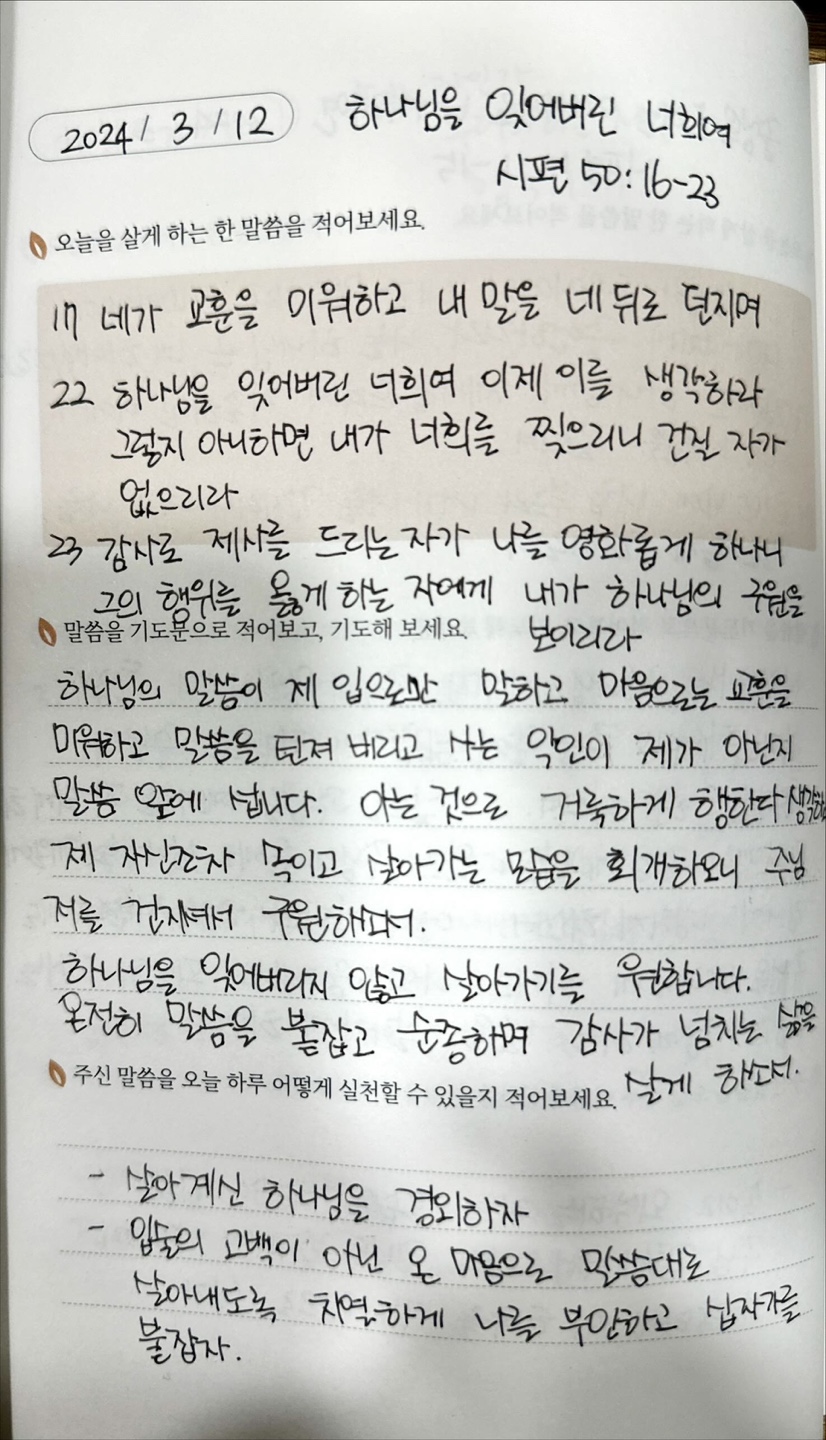 2024 / 3 / 12
하나님을 잊어버린 너희여
시편 50:16-23
오늘을 살게 하는 한 말씀을 적어보세요.
17 네가 교훈을 미워하고 내 말을 네 뒤로 던지며
22 하나님을 잊어버린 너희여 이제 이를 생각하라
그렇지 아니하면 내가 너희를 찢으리니 건질 자가
없으리라
23 감사로 제사를 드리는 자가 나를 영화롭게 하나니
그의 행위를 옳게 하는 자에게 내가 하나님의 구원을
보이리라
말씀을 기도문으로 적어보고, 기도해 보세요.
하나님의 말씀이 제 입으로만 말하고 마음으로는 교훈을
미워하고 말씀을 던져 버리고 사는 악인이 제가 아닌지
말씀 앞에 섭니다. 아는 것으로 거룩하게 행한다 생각하며
제 자신조차 속이고 살아가는 모습을 회개하오니 주님
저를 건지셔서 구원하소서.
하나님을 잊어버리지 않고 살아가기를 원합니다.
온전히 말씀을 붙잡고 순종하며 감사가 넘치는 삶을
살게 하소서.
주신 말씀을 오늘 하루 어떻게 실천할 수 있을지 적어보세요.
- 살아계신 하나님을 경외하자
- 입술의 고백이 아닌 온 마음으로 말씀대로
살아내도록 치열하게 나를 부인하고 십자가를
붙잡자.